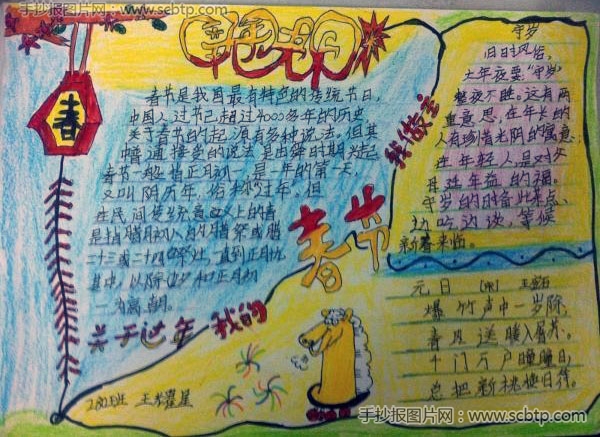 手抄报图片网:www.scbtp.com
春
春节是我国最有特色的传统节日,
中国人过节已超过4000多年的历史
关于春节的起源有多种说法,但其
中普通接受的说法是由舜时期兴起
春节一般指正月初一,是一年的第一天,
又叫阴历年,俗称过年。但
在民间传统意义上的春
是指腊月初八的腊祭或腊
二十三或二十四的祭灶,一直到正月
其中,以除夕和正月初
一为高潮。
关于过年 我的
我做主
春节
守岁
旧时风俗,
大年夜要"守岁"
整夜不睡。这有两
重意思,在年长的
人有珍惜光阴的寓意;
在年轻人是为父
母延年益的福。
守岁的时备些点、
边吃边谈,等候
新春来临。
元日 [宋] 王安石
爆竹声中一岁除,
春风送暖入屠苏。
千门万户瞳瞳日,
总把新桃换旧符。
2班
手抄报图片网:www.scbtp.com